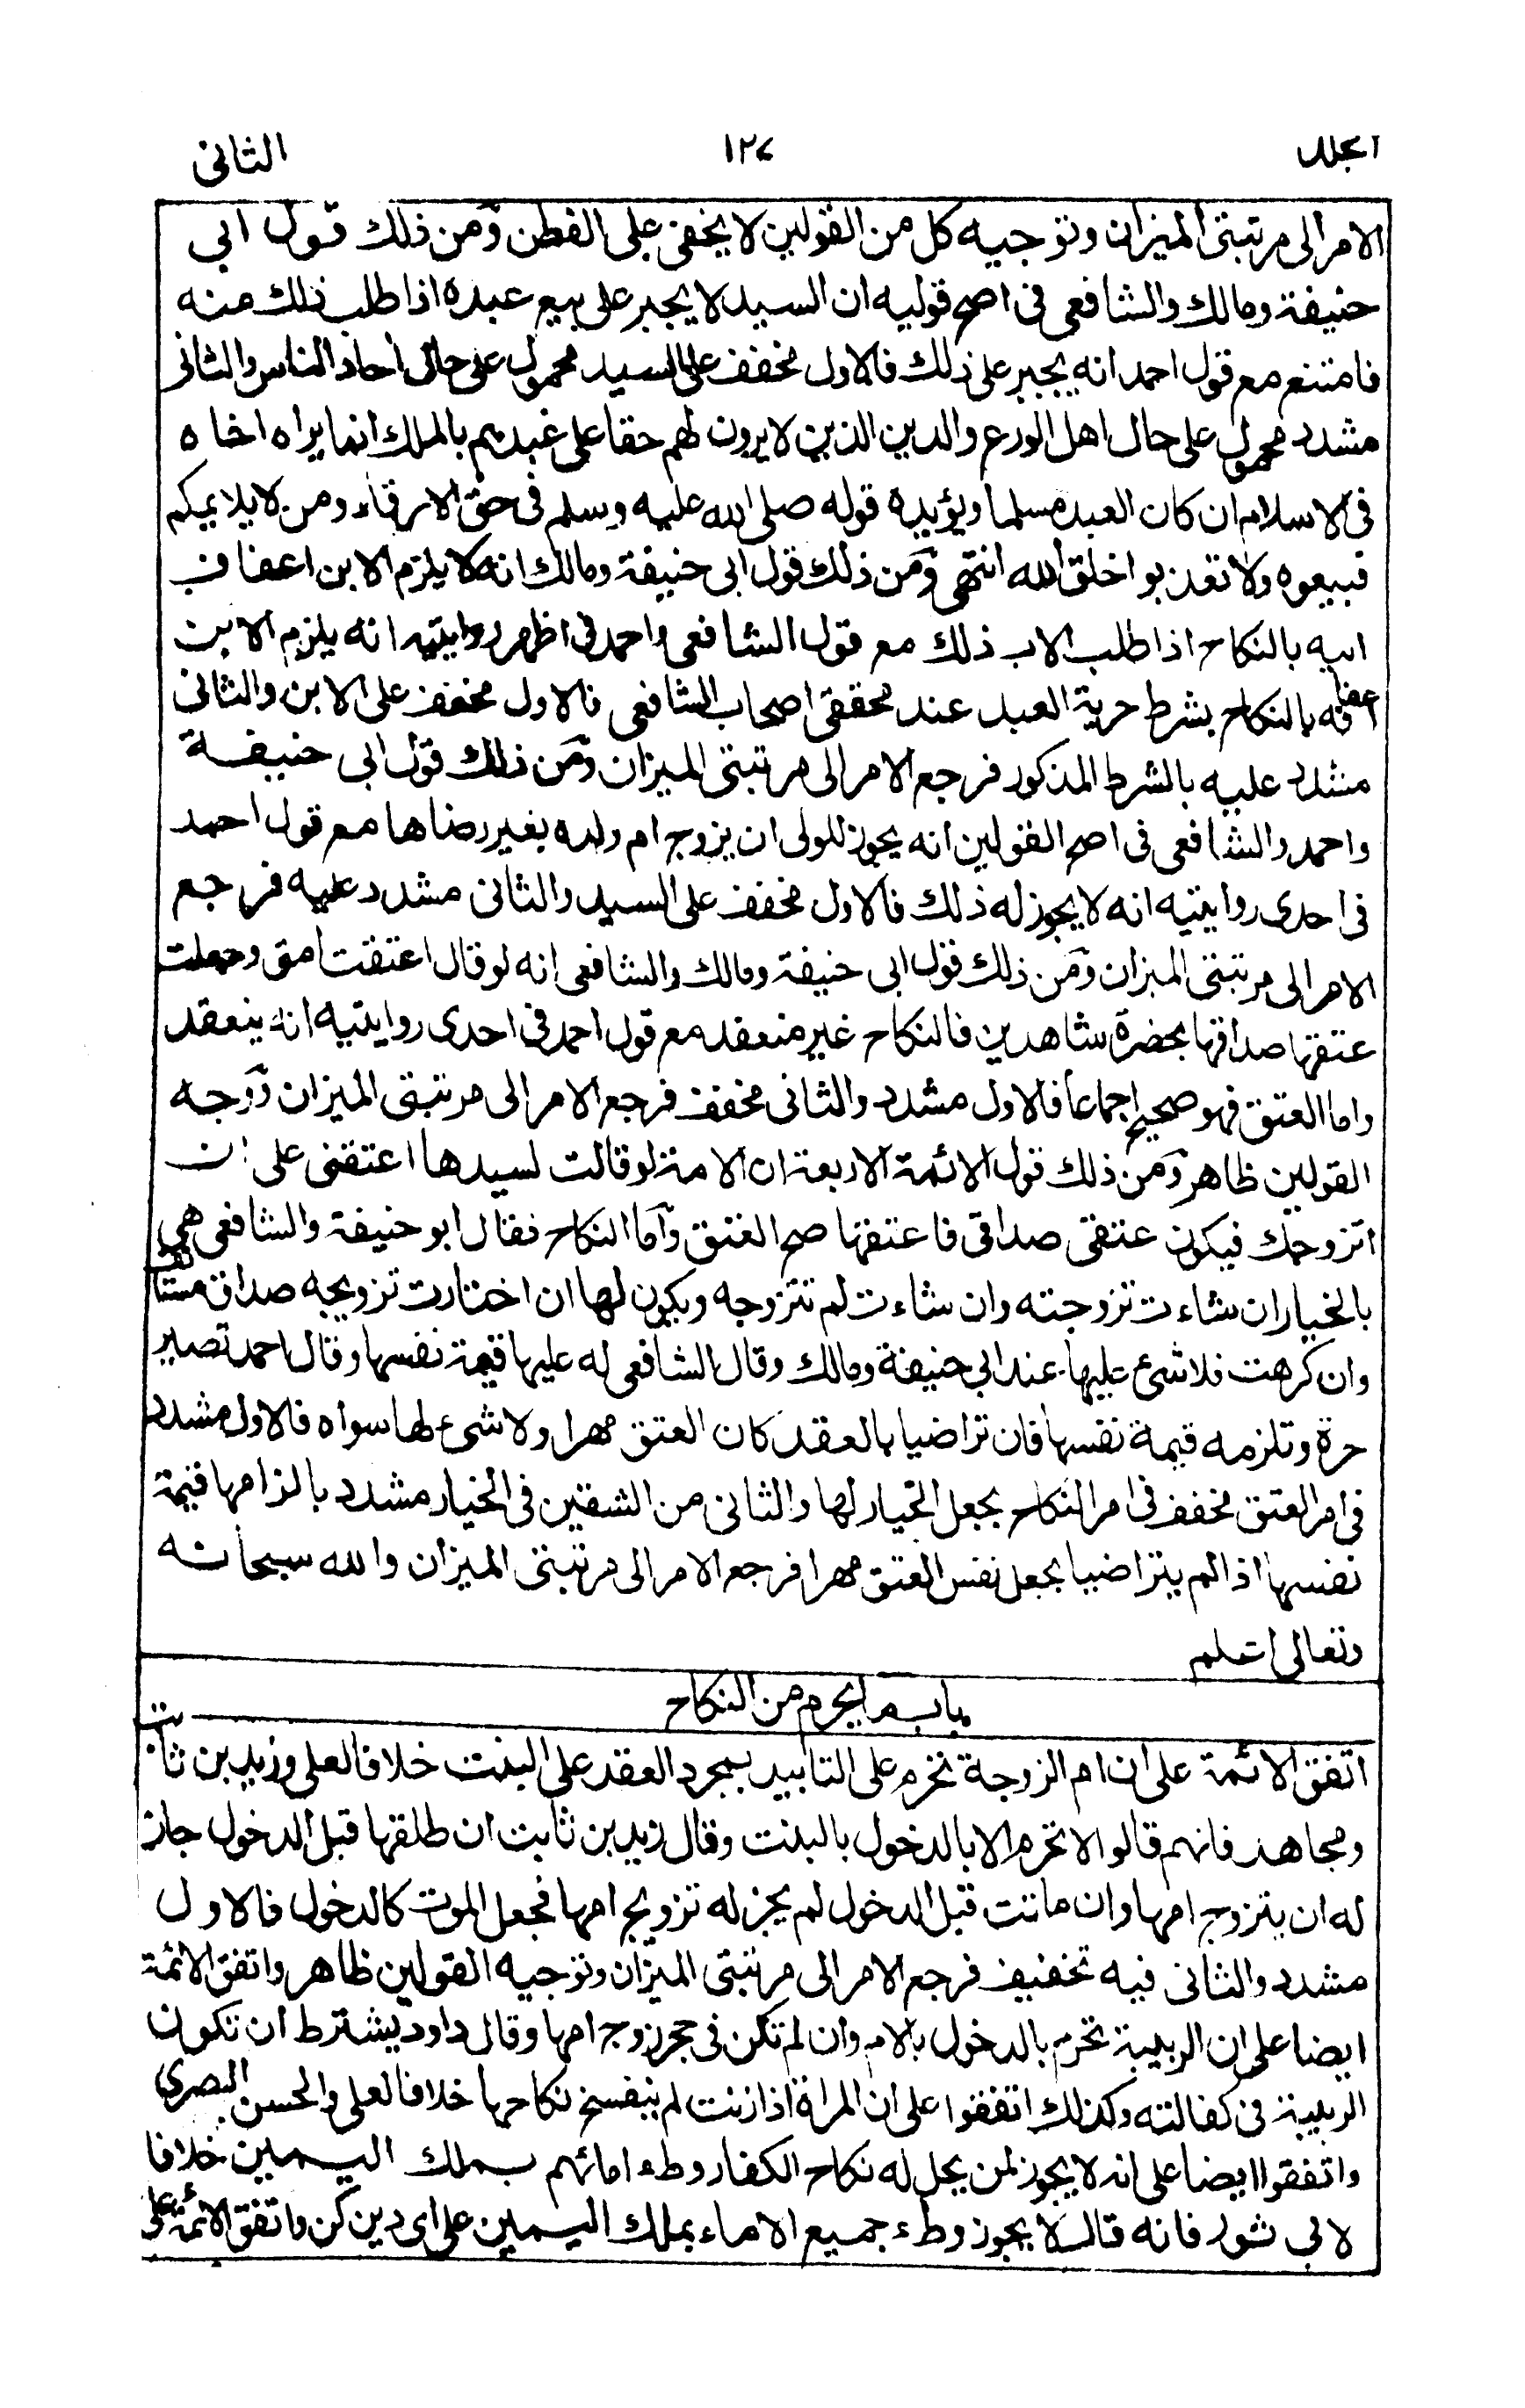 المجلد ١٢٧ الثانی
الامر الی مرتبتی المیزان وتوجیه کل من القولین لا یخفی علی الفطن ومن ذلك قول ابی
حنیفة ومالك والشافعی فی اصح قولیه ان السید لا یجبر علی بیع عبده اذا طلب ذلك منه
فامتنع مع قول احمد انه یجبر علی ذلك فالاول مخفف علی السید محمول علی حال احاد الناس والثانی
مشدد محمول علی حال اهل الورع والدین الذین لا یرون لهم حقا علی عبدهم بالملك انما یراه اخاه
فی الاسلام ان کان العبد مسلما ویؤیده قوله صلی الله علیه وسلم فی حق الارقاء ومن لا یلایمکم
فبیعوه ولا تعذبوا خلق الله انتهی ومن ذلك قول ابی حنیفة ومالك انه لا یلزم الابن اعفاف
ابیه بالنکاح اذا طلب الاب ذلك مع قول الشافعی واحمد فی اظهر روایتیه انه یلزم الابن
اعفافه بالنکاح بشرط حریة العبد عند محققی اصحاب الشافعی فالاول مخفف علی الابن والثانی
مشدد علیه بالشرط المذکور فرجع الامر الی مرتبتی المیزان ومن ذلك قول ابی حنیفة
واحمد والشافعی فی اصح القولین انه یجوز للولی ان یزوج ام ولده بغیر رضاها مع قول احمد
فی احدی روایتیه انه لا یجوز له ذلك فالاول مخفف علی السید والثانی مشدد علیه فرجع
الامر الی مرتبتی المیزان ومن ذلك قول ابی حنیفة ومالك والشافعی انه لو قال اعتقت امتی وجعلت
عتقها صداقها بحضرة شاهدین فالنکاح غیر منعقد مع قول احمد فی احدی روایتیه انه ینعقد
واما العتق فهو صحیح اجماعا فالاول مشدد والثانی مخفف فرجع الامر الی مرتبتی المیزان ووجه
القولین ظاهر ومن ذلك قول الائمة الاربعة ان الامة لو قالت لسیدها اعتقنی علی ان
اتزوجك فیکون عتقی صداقی فاعتقها صح العتق واما النکاح فقال ابو حنیفة والشافعی هی
بالخیار ان شاءت تزوجته وان شاءت لم تتزوجه ویکون لها ان اختارت تزویجه صداق مستانف
وان کرهت فلا شیء علیها عند ابی حنیفة ومالك وقال الشافعی له علیها قیمة نفسها وقال احمد تصیر
حرة وتلزمه قیمة نفسها فان تراضیا بالعقد کان العتق مهرا ولا شیء لها سواه فالاول مشدد
فی امر العتق مخفف فی امر النکاح بجعل الخیار لها والثانی من الشقین فی الخیار مشدد بالزامها قیمة
نفسها اذا لم یتراضیا بجعل نفس العتق مهرا فرجع الامر الی مرتبتی المیزان والله سبحانه
وتعالی اعلم
باب ما یحرم من النکاح
اتفق الائمة علی ان ام الزوجة تحرم علی التابید بمجرد العقد علی البنت خلافا لعلی وزید بن ثابت
ومجاهد فانهم قالوا لا تحرم الا بالدخول بالبنت وقال زید بن ثابت ان طلقها قبل الدخول جاز
له ان یتزوج امها وان ماتت قبل الدخول لم یجز له تزویج امها فجعل الموت کالدخول فالاول
مشدد والثانی فیه تخفیف فرجع الامر الی مرتبتی المیزان وتوجیه القولین ظاهر واتفق الائمة
ایضا علی ان الربیبة تحرم بالدخول بالام وان لم تکن فی حجر زوج امها وقال داود یشترط ان تکون
الربیبة فی کفالته وکذلك اتفقوا علی ان المراة اذا زنت لم ینفسخ نکاحها خلافا لعلی والحسن البصری
واتفقوا ایضا علی انه لا یجوز لمن یحل له نکاح الکفار وطء امائهم بملك الیمین خلافا
لابی ثور فانه قال لا یجوز وطء جمیع الاماء بملك الیمین علی ای دین کن واتفق الائمة علی